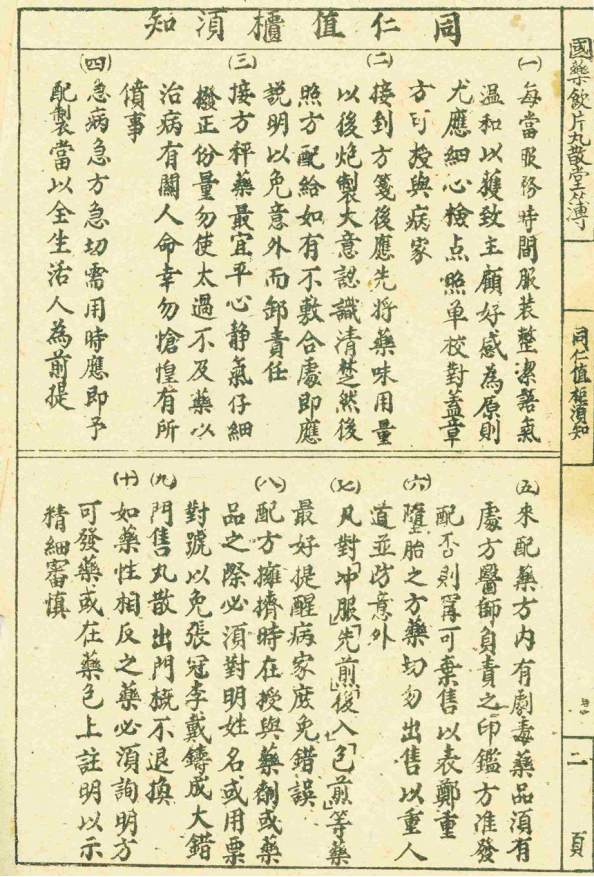 同仁值櫃湏知
㈠每當服務時間服装整潔語氣
温和以獲致主顧好感為原則
尤應細心檢点照单校對蓋章
方可授與病家
㈡接到方箋後應先将藥味用量
以後炮製大意認識清楚然後
照方配給如有不敷合處即應
説明以免意外而卸責任
㈢接方秤藥最宜平心静氣仔細
撥正份量勿使太過不及藥以
治病有關人命幸勿愴惶有所
僨事
㈣急病急方急切需用時應即予
配製當以全生活人為前提
㈤来配藥方内有劇毒藥品湏有
處方醫師負責之印鑑方准發
配否則寗可棄售以表鄭重
㈥墮胎之方藥切勿出售以重人
道並防意外
㈦凡對「冲服」「先煎」「後入」「包煎」等藥
最好提醒病家庶免錯誤
㈧配方擁擠時在授與藥劑或藥
品之際必湏對明姓名或用票
對號以免張冠李戴鑄成大錯
㈨門售丸散出門概不退換
㈩如藥性相反之藥必湏詢明方
可發藥或在藥包上註明以示
精細審慎
國藥飲片丸散堂簿
同仁值櫃湏知
二頁